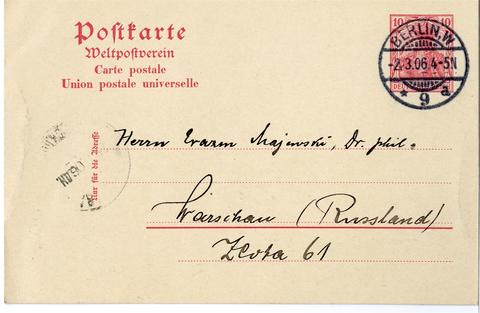 Postkarte
Weltpostverein
Carte postale
Union postale universelle
10 10
BERLIN, W.
-2.3.06.4-5N
* 9 a
Nur für die Adresse
Herrn Erazm Majewski, Dr. phil.
Warschau (Russland)
Zlota 61